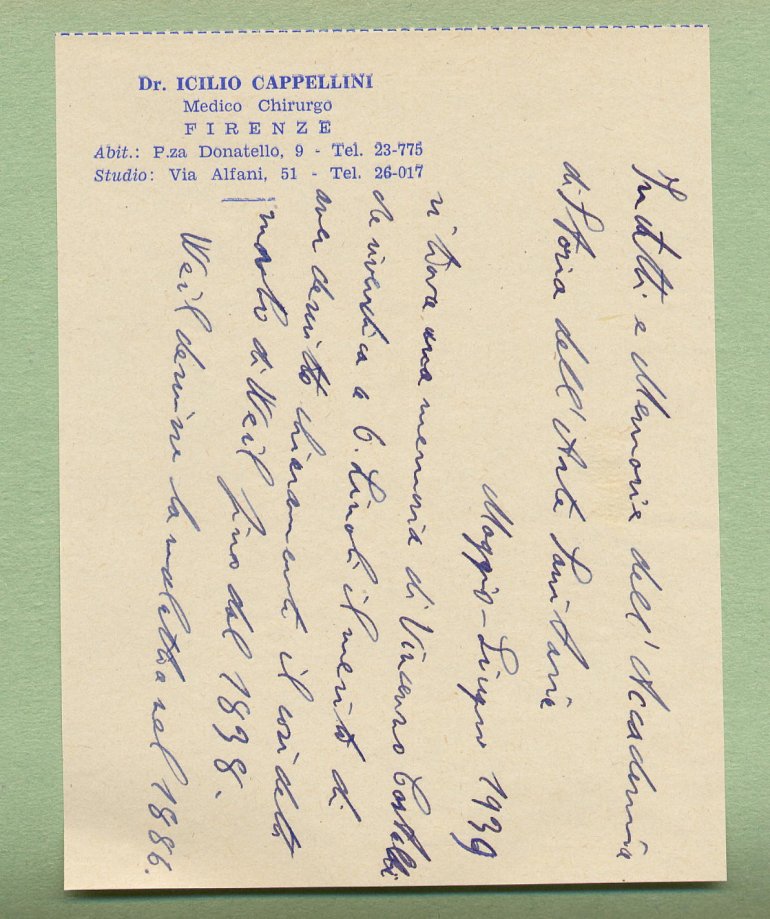 Dr. ICILIO CAPPELLINI
Medico Chirurgo
FIRENZE
Abit.: P.za Donatello, 9 - Tel. 23-775
Studio: Via Alfani, 51 - Tel. 26-017
In Atti e Memorie dell'Accademia
di Storia dell'Arte Sanitaria
Maggio-Giugno 1939
vi trova una memoria di Vincenzo Castaldi
che rivendica a G. Linoli il merito di
aver descritto chiaramente il così detto
morbo di Weil fino dal 1838.
Weil descrisse la malattia nel 1886.